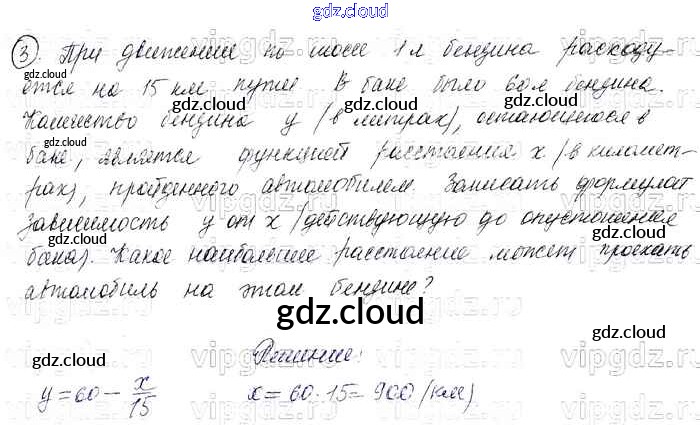 gdz.cloud
③. При движении по шоссе 1 л бензина расходу-
ется на 15 км пути. В баке было 60 л бензина.
Количество бензина y (в литрах), остающегося в
баке, является функцией расстояния x (в километ-
рах), пройденного автомобилем. Записать формулат
зависимость y от x (действующую до опустошения
бака). Какое наибольшее расстояние может проехать
автомобиль на этом бензине?
gdz.cloud
Решение:
y = 60 - x/15 x = 60 · 15 = 900 (км)